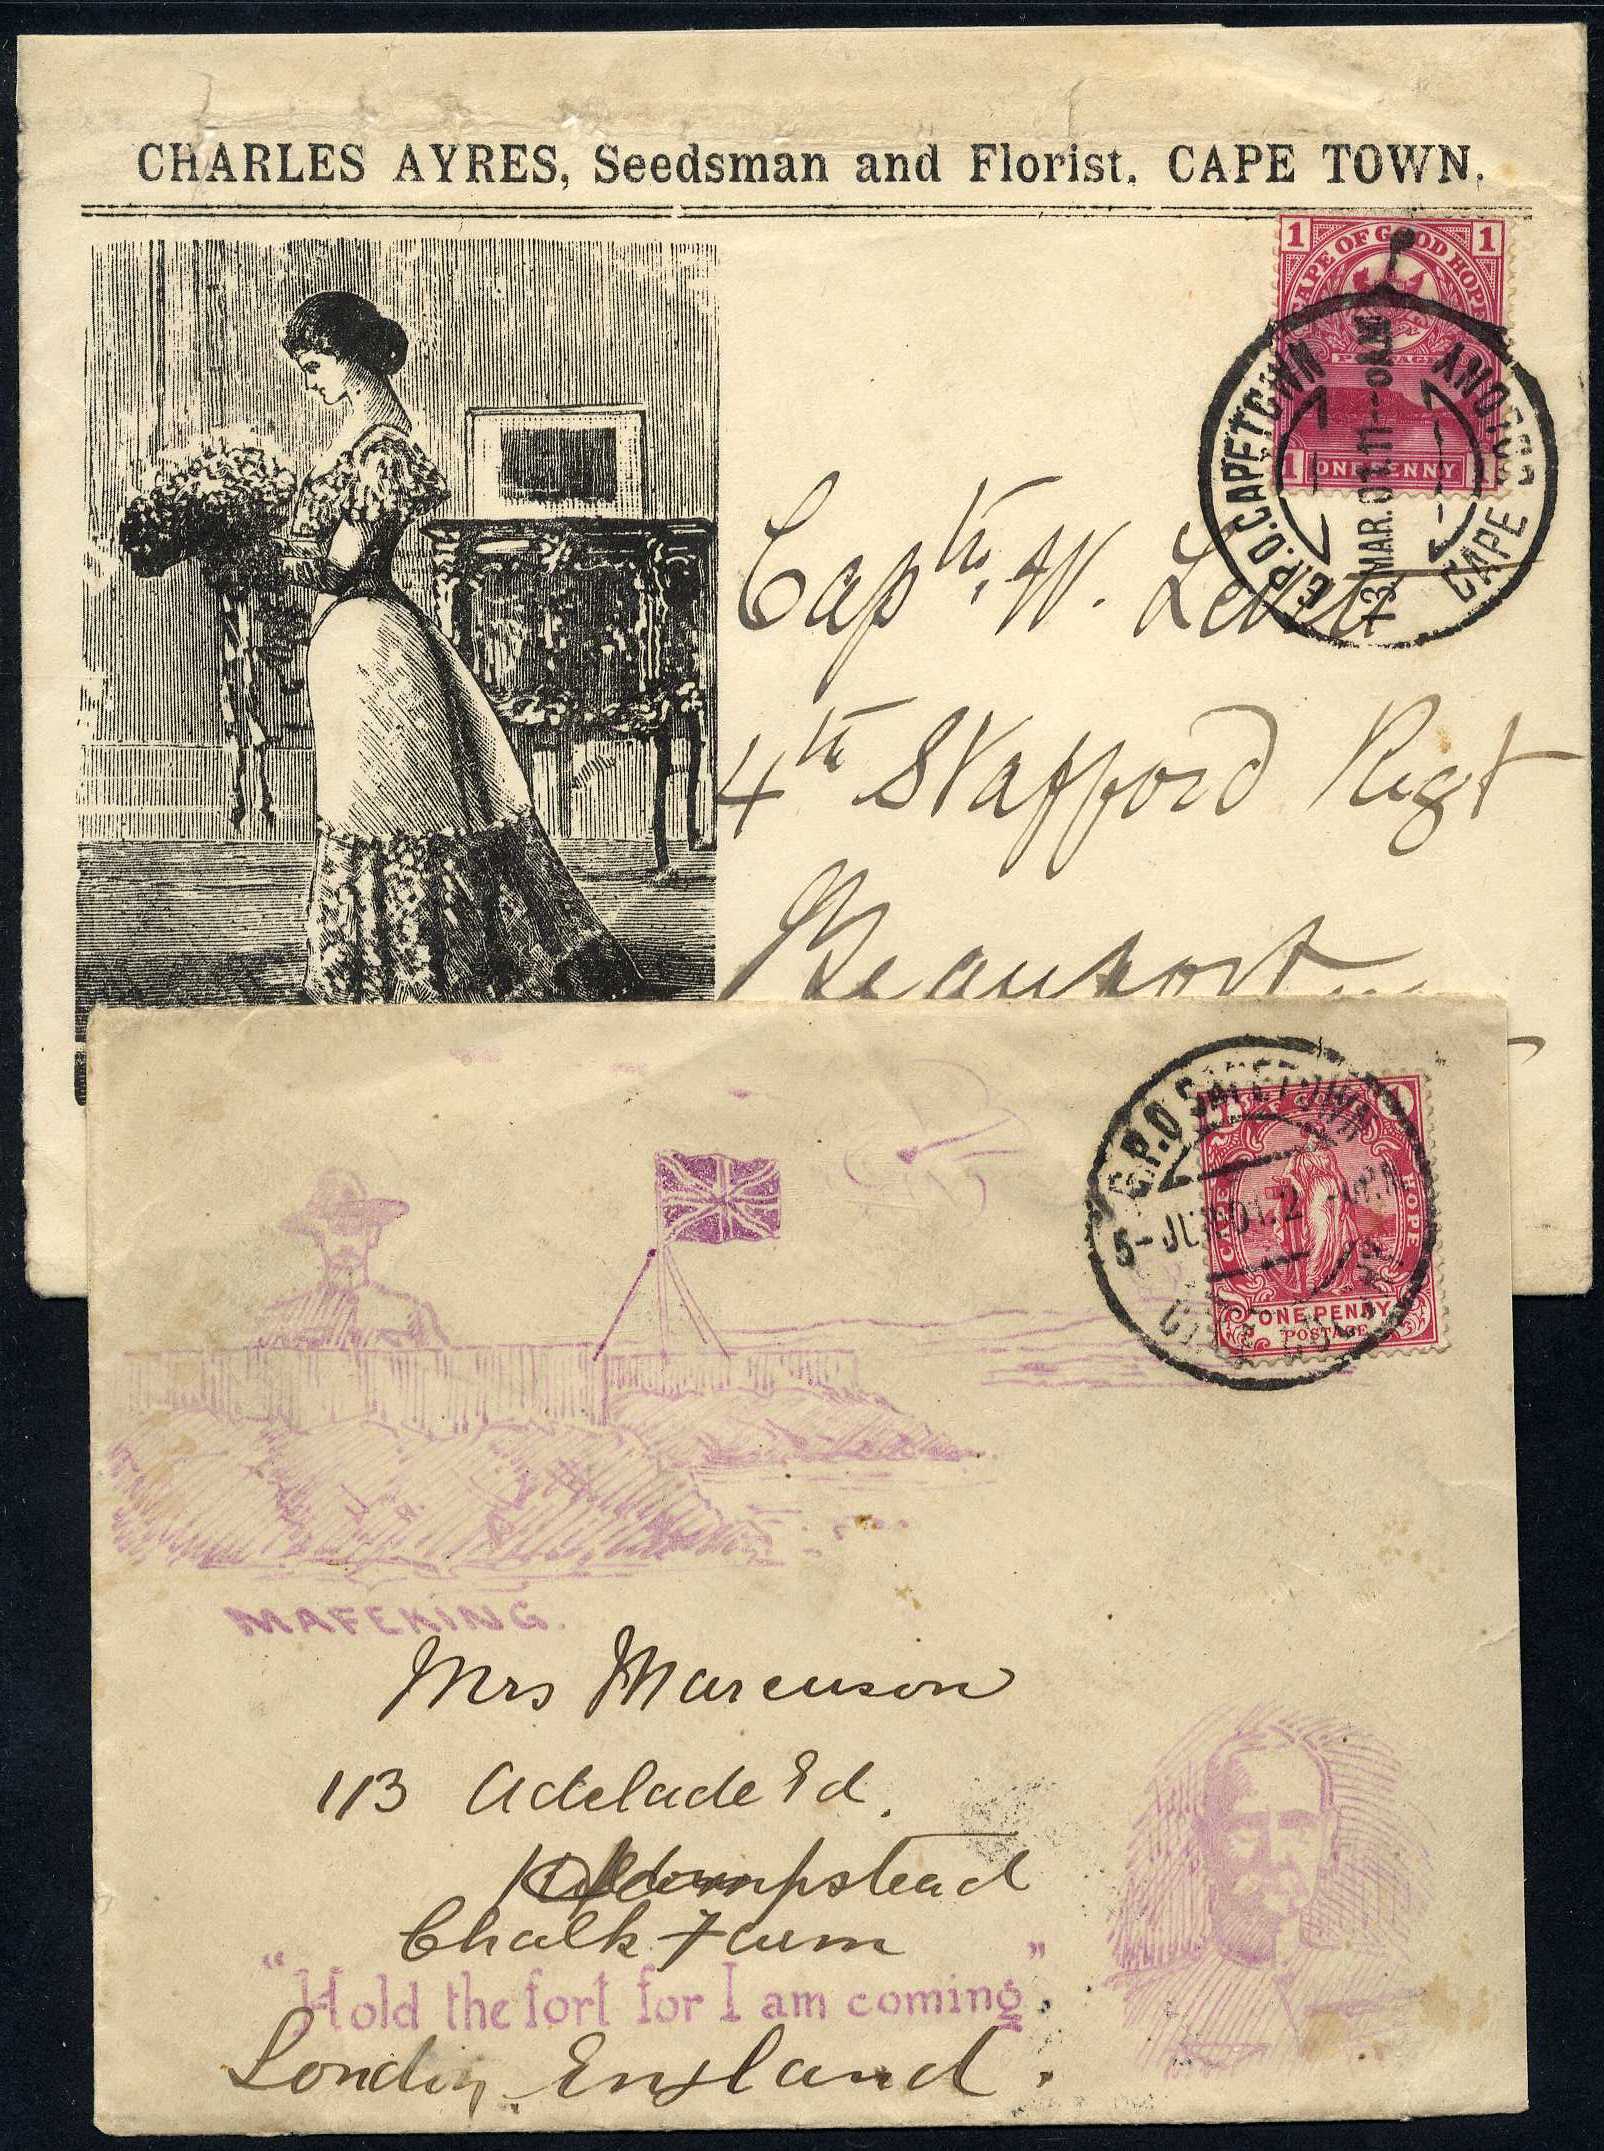 CHARLES AYRES, Seedsman and Florist. CAPE TOWN.
1 CAPE OF GOOD HOPE 1
POSTAGE
1 ONE PENNY 1
G.P.O. CAPETOWN
13 MAR. 01. 11
CAPE COLONY
Captn. W. Levett
4th Stafford Regt
Beaufort
G.P.O CAPETOWN
CAPE HOPE
ONE PENNY
POSTAGE
MAFEKING.
Mrs Marcuson
113 Adelade Rd.
Chalk Farm
"Hold the fort for I am coming".
London, England.